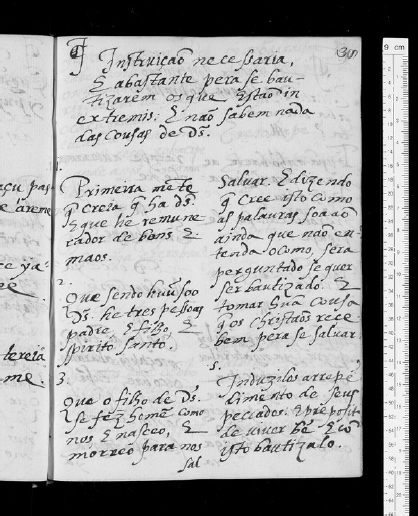 Instruiçaõ necessaria,
E abastante pera se bau-
tizarem os que Estaõ in
extremis: E naõ sabem nada
das cousas de Ds.
1.
Primeira mẽte
q̃ creia q̃ ha Ds.
que he remune
rador de bons E
maos.
2.
Que sendo huũ soo
Ds. he tres pessoas
padre, E filho, E
spirito santo.
3.
Que o filho de Ds.
se fez homẽ como
nos E nasceo, E
morreo para nos
sal
Salvar. E dizendo
q̃ Cree isto como
as palauras soaõ
ainda que naõ en-
tenda o como, sera
perguntado se quer
ser bautizado. E
tomar hua cousa
q̃ os christaõs rece
bem pera se salvar.
5.
Induzilo a arrepẽ
dimento de seus
peccados. E preposito
de viver bẽ E cõ
isto bautizalo.
açu pas-
e areme
ce ya-
tereia
me.
9 cm